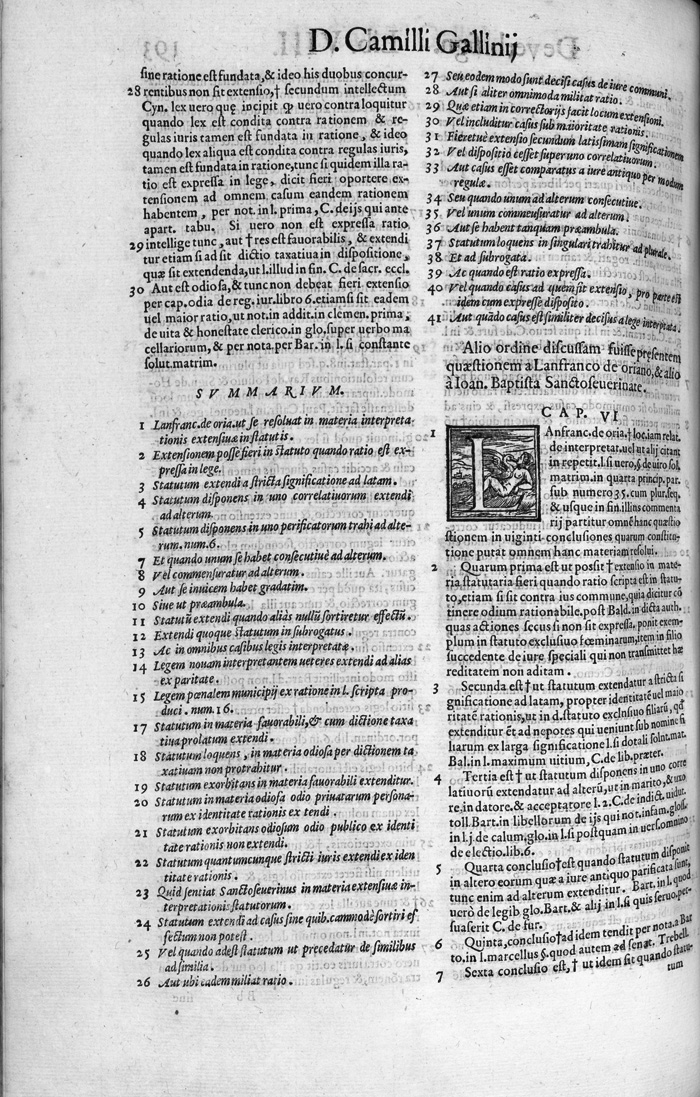 D. Camilli Gallinij
sine ratione est fundata, & ideo his duobus concur-
28 rentibus non sit extensio, † secundum intellectum
Cyn. lex uero quę incipit ꝙ uero contra loquitur
quando lex est condita contra rationem & re-
gulas iuris tamen est fundata in ratione, & ideo
quando lex aliqua est condita contra regulas iuris,
tamen est fundata in ratione, tunc si quidem illa ra-
tio est expressa in lege, dicit fieri oportere ex-
tensionem ad omnem casum eandem rationem
habentem, per not. in l. prima, C. de ijs qui ante
apart. tabu. Si uero non est expressa ratio
29 intellige tunc, aut † res est fauorabilis, & extendi
tur etiam si ad sit dictio taxatiua in dispositione,
quæ sit extendenda, ut l. illud in fin. C. de sacr. eccl.
30 Aut est odiosa, & tunc non debeat fieri extensio
per cap. odia de reg. iur. libro 6. etiamsi sit eadem
uel maior ratio, ut not. in addit. in clemen. prima,
de uita & honestate clerico. in glo. super uerbo ma
cellariorum, & per nota. per Bar. in l. si constante
solut. matrim.
SVMMARIVM.
1 Lanfranc. de oria. ut se resoluat in materia interpreta
tionis extensiuæ in statutis.
2 Extensionem posse fieri in statuto quando ratio est ex-
pressa in lege.
3 Statutum extendi a stricta significatione ad latam.
4 Statutum disponens in uno correlatiuorum extendi
ad alterum.
5 Statutum disponens in uno perificatorum trahi ad alte-
rum. num. 6.
7 Et quando unum se habet consecutiuè ad alterum.
8 Vel commensuratur ad alterum.
9 Aut se inuicem habet gradatim.
10 Siue ut præambula.
11 Statutũ extendi quando aliàs nullũ sortiretur effectũ.
12 Extendi quoque statutum in subrogatus.
13 Ac in omnibus casibus legis interpretatæ.
14 Legem nouam interpretantem ueteres extendi ad alias
ex paritate.
15 Legem pœnalem municipij ex ratione in l. scripta pro-
duci. num. 16.
17 Statutum in materia fauorabili, & cum dictione taxa
tiua prolatum extendi.
18 Statutum loquens, in materia odiosa per dictionem ta
xatiuam non protrahitur.
19 Statutum exorbitans in materia fauorabili extenditur.
20 Statutum in materia odiosa odio priuatarum persona-
rum ex identitate rationis extendi.
21 Statutum exorbitans odiosum odio publico ex identi
tate rationis non extendi.
22 Statutum quantumcunque stricti iuris extendi ex iden
titate rationis.
23 Quid sentiat Sanctoseuerinus in materia extensiuæ in-
terpretationis statutorum.
24 Statutum extendi ad casus sine quib. cammodè sortiri ef
fectum non potest.
25 Vel quando adest statutum ut precedatur de similibus
ad similia.
26 Aut ubi eadem miliat ratio.
27 Seu eodem modo sunt decisi casus de iure communi.
28 Aut si aliter omnimoda militat ratio.
29 Quæ etiam in correctorijs facit locum extensioni.
30 Vel includitur casus sub maioritate rationis.
31 Fieretuè extensio secundum latissimam significationem
32 Vel dispositio cesset super uno correlatiuorum.
33 Aut casus esset comparatus a iure antiquo per modum
regulæ.
34 Seu quando unum ad alterum consecutiue.
35 Vel unum commensuratur ad alterum.
36 Aut se habent tanquam præambula.
37 Statutum loquens in singulari trahitur ad plurale.
38 Et ad subrogata.
39 Ac quando est ratio expressa.
40 Vel quando casus ad quem sit extensio, pro parte est
idem cum expresse disposito.
41 Aut quãdo casus est similiter decisus a lege interpretata.
Alio ordine discussam fuisse præsentem
quæstionem à Lanfranco de oriano, & alio
à Ioan. Baptista Sanctoseuerinate.
CAP. VI.
1 LAnfranc. de oria. † locjam relat.
de interpretat. uel ut alij citant
in repetit. l. si uero, §. de uiro sol.
matrim. in quarta princip. par.
sub numero 35. cum plur. seq.
& usque in fin. illius commenta
rij partitur omnẽ hanc quæstio
stionem in uiginti conclusiones quarum constitu-
tione putat omnem hanc materiam resolui.
2 Quarum prima est ut possit † extensio in mate-
ria statutaria fieri quando ratio scripta est in statu-
to, etiam si sit contra ius commune, quia dicitur cõ
tinere odium rationabile. post Bald. in dicta auth.
quas actiones secus si non sit expressa, ponit exem-
plum in statuto exclusiuo fœminarum, item in filio
succedente de iure speciali qui non transmittet hæ
reditatem non aditam.
3 Secunda est † ut statutum extendatur a stricta si
gnificatione ad latam, propter identitatẽ uel maio
ritatẽ rationis, ut in d. statuto exclusiuo filiarũ, qđ
extenditur et ad nepotes qui ueniunt sub nomine fi
liarum ex larga significatione l. si dotali solut. mat.
Bal. in l. maximum uitium, C. de lib. præter.
4 Tertia est † ut statutum disponens in uno corre
latiuorũ extendatur ad alterũ, ut in marito, & uxo
re, in datore. & acceptatore l. 2. C. de indict. uidut.
toll. Bart. in libellorum de ijs qui not. infam. gloss.
in l. j. de calum. glo. in l. si postquam in uers. omnino
de electio. lib. 6.
5 Quarta conclusio † est quando statutum disponit
in altero eorum quæ a iure antiquo parificata sunt,
tunc enim ad alterum extenditur. Bart. in l. quod
uerò de legib glo. Bart. & alij in l. si quis seruo. per-
suaserit C. de fur.
6 Quinta, conclusio † ad idem tendit per nota. a Bar
to. in l. marcellus §. quod autem ad senat. Trebell.
7 Sexta conclusio est, † ut idem sit quando statu-
tum